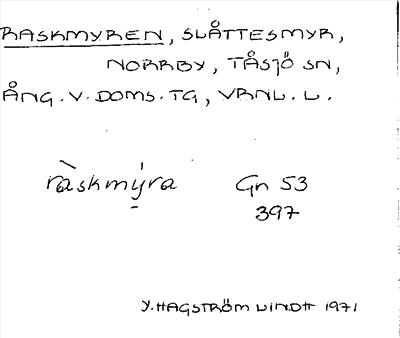 RASKMYREN, SLÅTTESMYR,
NORRBY, TÅSJÖ SN,
ÅNG. V. DOMS. TG, VRNL. L.
ràskmýra Gn 53
397
Y. HAGSTRÖM LINDH 1971